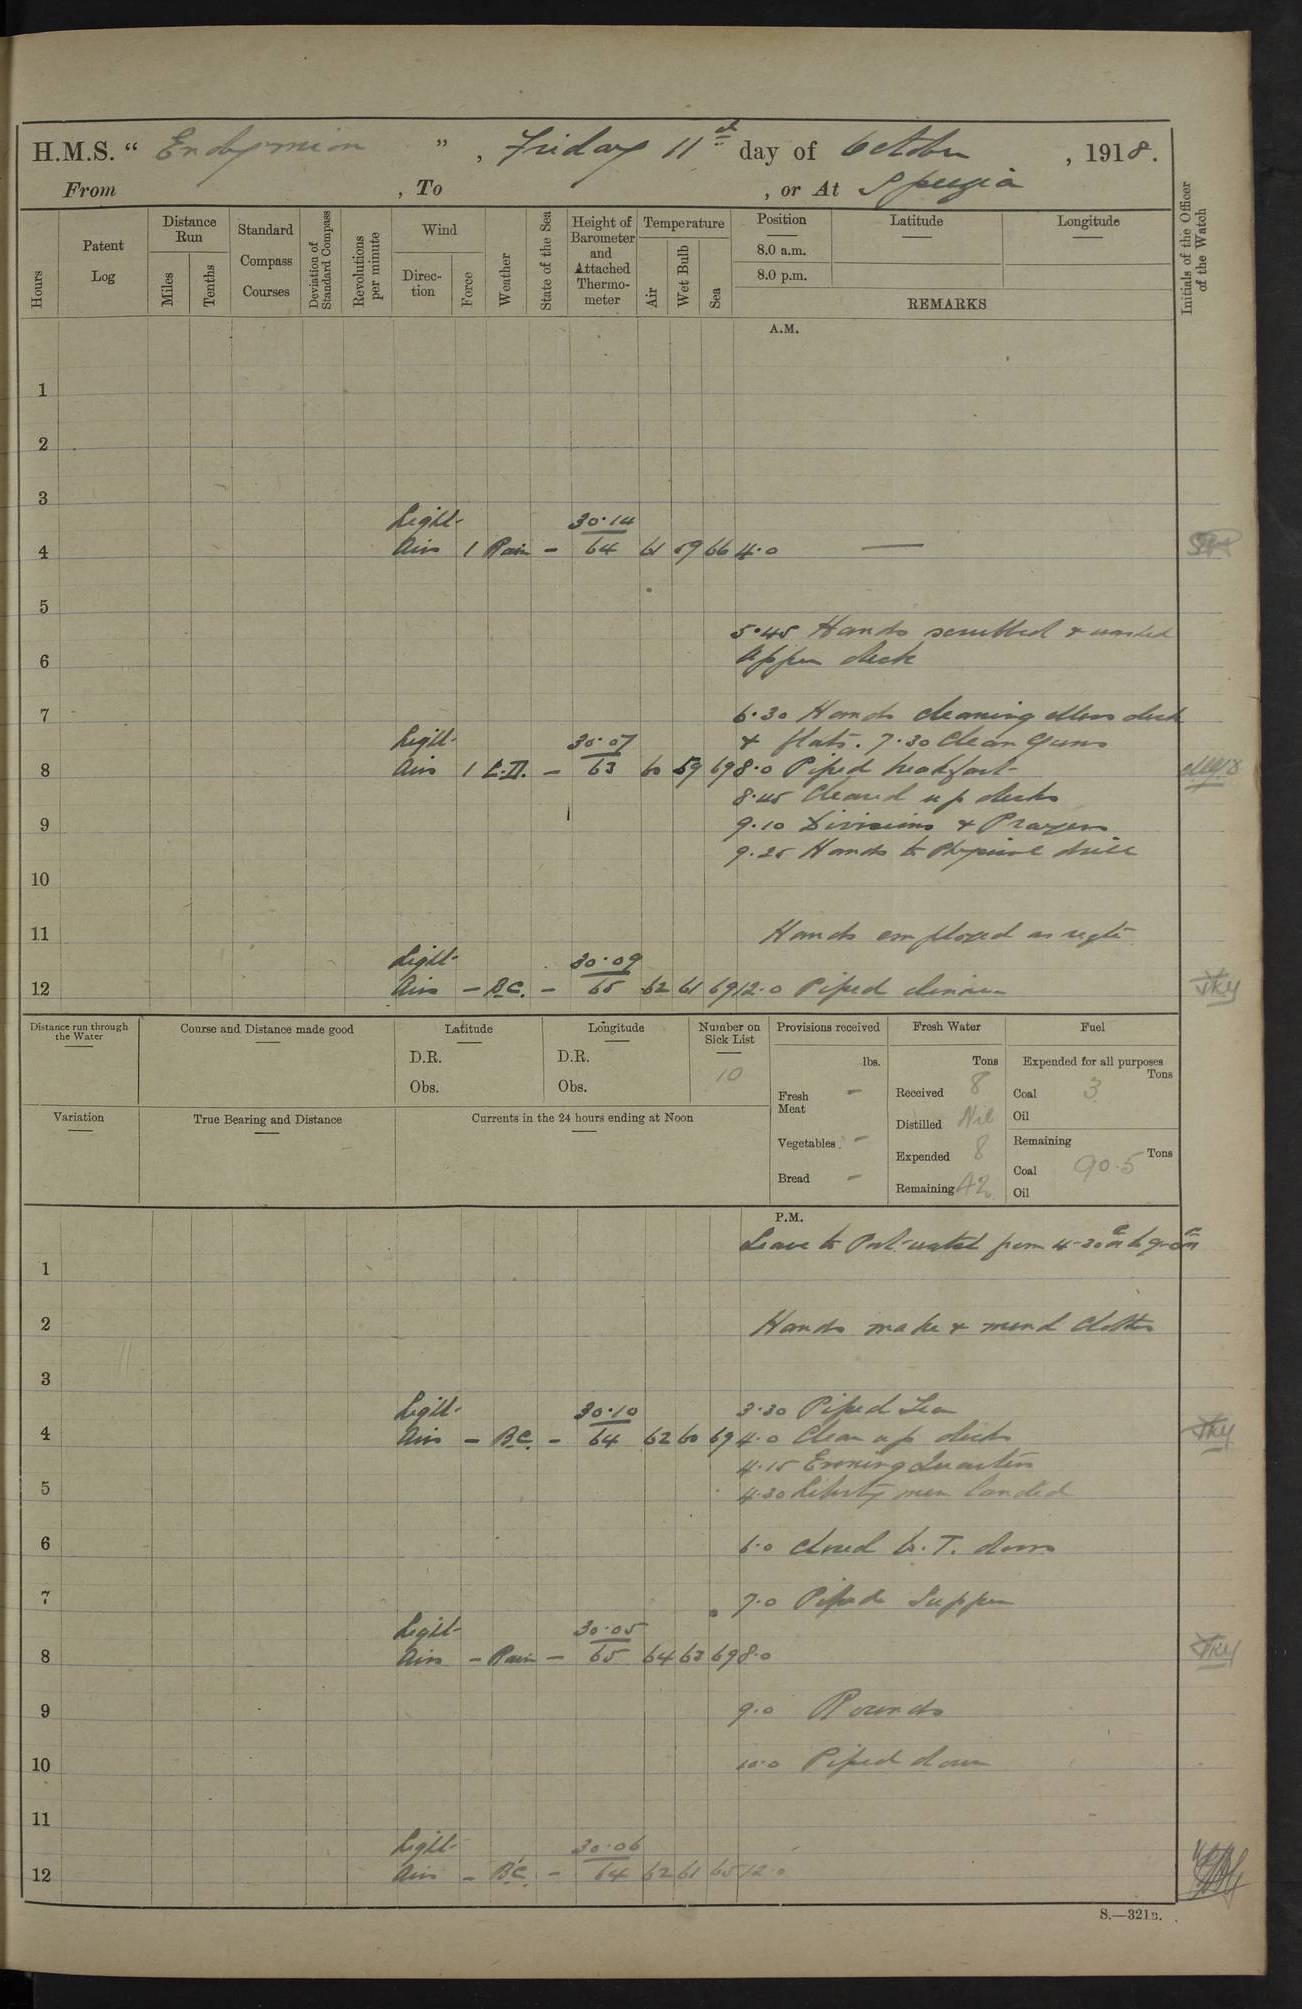 H.M.S. " Endymion ", Friday 11th day of October, 1918.
From , To , or At Spezia
Hours
Patent Log
Distance Run
Miles
Tenths
Standard Compass Courses
Deviation of Standard Compass
Revolutions per minute
Wind
Direction
Force
Weather
State of the Sea
Height of Barometer and Attached Thermometer
Temperature
Air
Wet Bulb
Sea
Position
8.0 a.m.
8.0 p.m.
Latitude
Longitude
REMARKS
Initials of the Officer of the Watch
A.M.
1
2
3
Light 30.14
4 Airs 1 Rain – 64 61 59 66 4.0 —
5
5.45 Hands scrubbed & washed
6 Upper deck
7 6.30 Hands cleaning Mess deck
Light 30.07 & flats. 7.30 Clean Guns
8 Airs 1 – 63 60 59 69 8.0 Piped breakfast
8.45 Cleared up decks
9 9.10 Divisions & Prayers
9.25 Hands to Physical drill
10
11 Hands employed as reqte
Light 30.09
12 Airs – B.C. – 65 62 61 69 12.0 Piped dinner JKY
Distance run through the Water
Course and Distance made good
Latitude
D.R.
Obs.
Longitude
D.R.
Obs.
Number on Sick List
10
Provisions received
lbs.
Fresh Meat –
Vegetables –
Bread –
Fresh Water
Tons
Received 8
Distilled Nil
Expended 8
Remaining 42
Fuel
Expended for all purposes
Tons
Coal 3
Oil
Remaining
Tons
Coal 90.5
Oil
Variation
True Bearing and Distance
Currents in the 24 hours ending at Noon
P.M.
Leave to Port watch from 4-30 pm to 9-0 pm
1
2 Hands make & mend clothes
3
Light 30.10 3.30 Piped Tea
4 Airs – B.C. – 64 62 60 69 4.0 Clean up decks JKY
4.15 Evening Quarters
5 4.30 Liberty men landed
6 6.0 Closed W.T. doors
7 7.0 Piped Supper
Light 30.05
8 Airs – Rain – 65 64 63 69 8.0 JKY
9 9.0 Rounds
10 10.0 Piped down
11
Light 30.06
12 Airs – B.C. – 64 62 61 65 12.0
S.—321B.